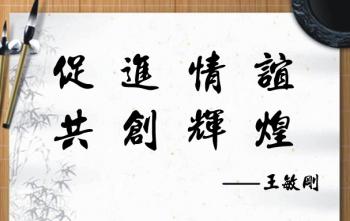 促進情誼
共創輝煌
——王敏剛